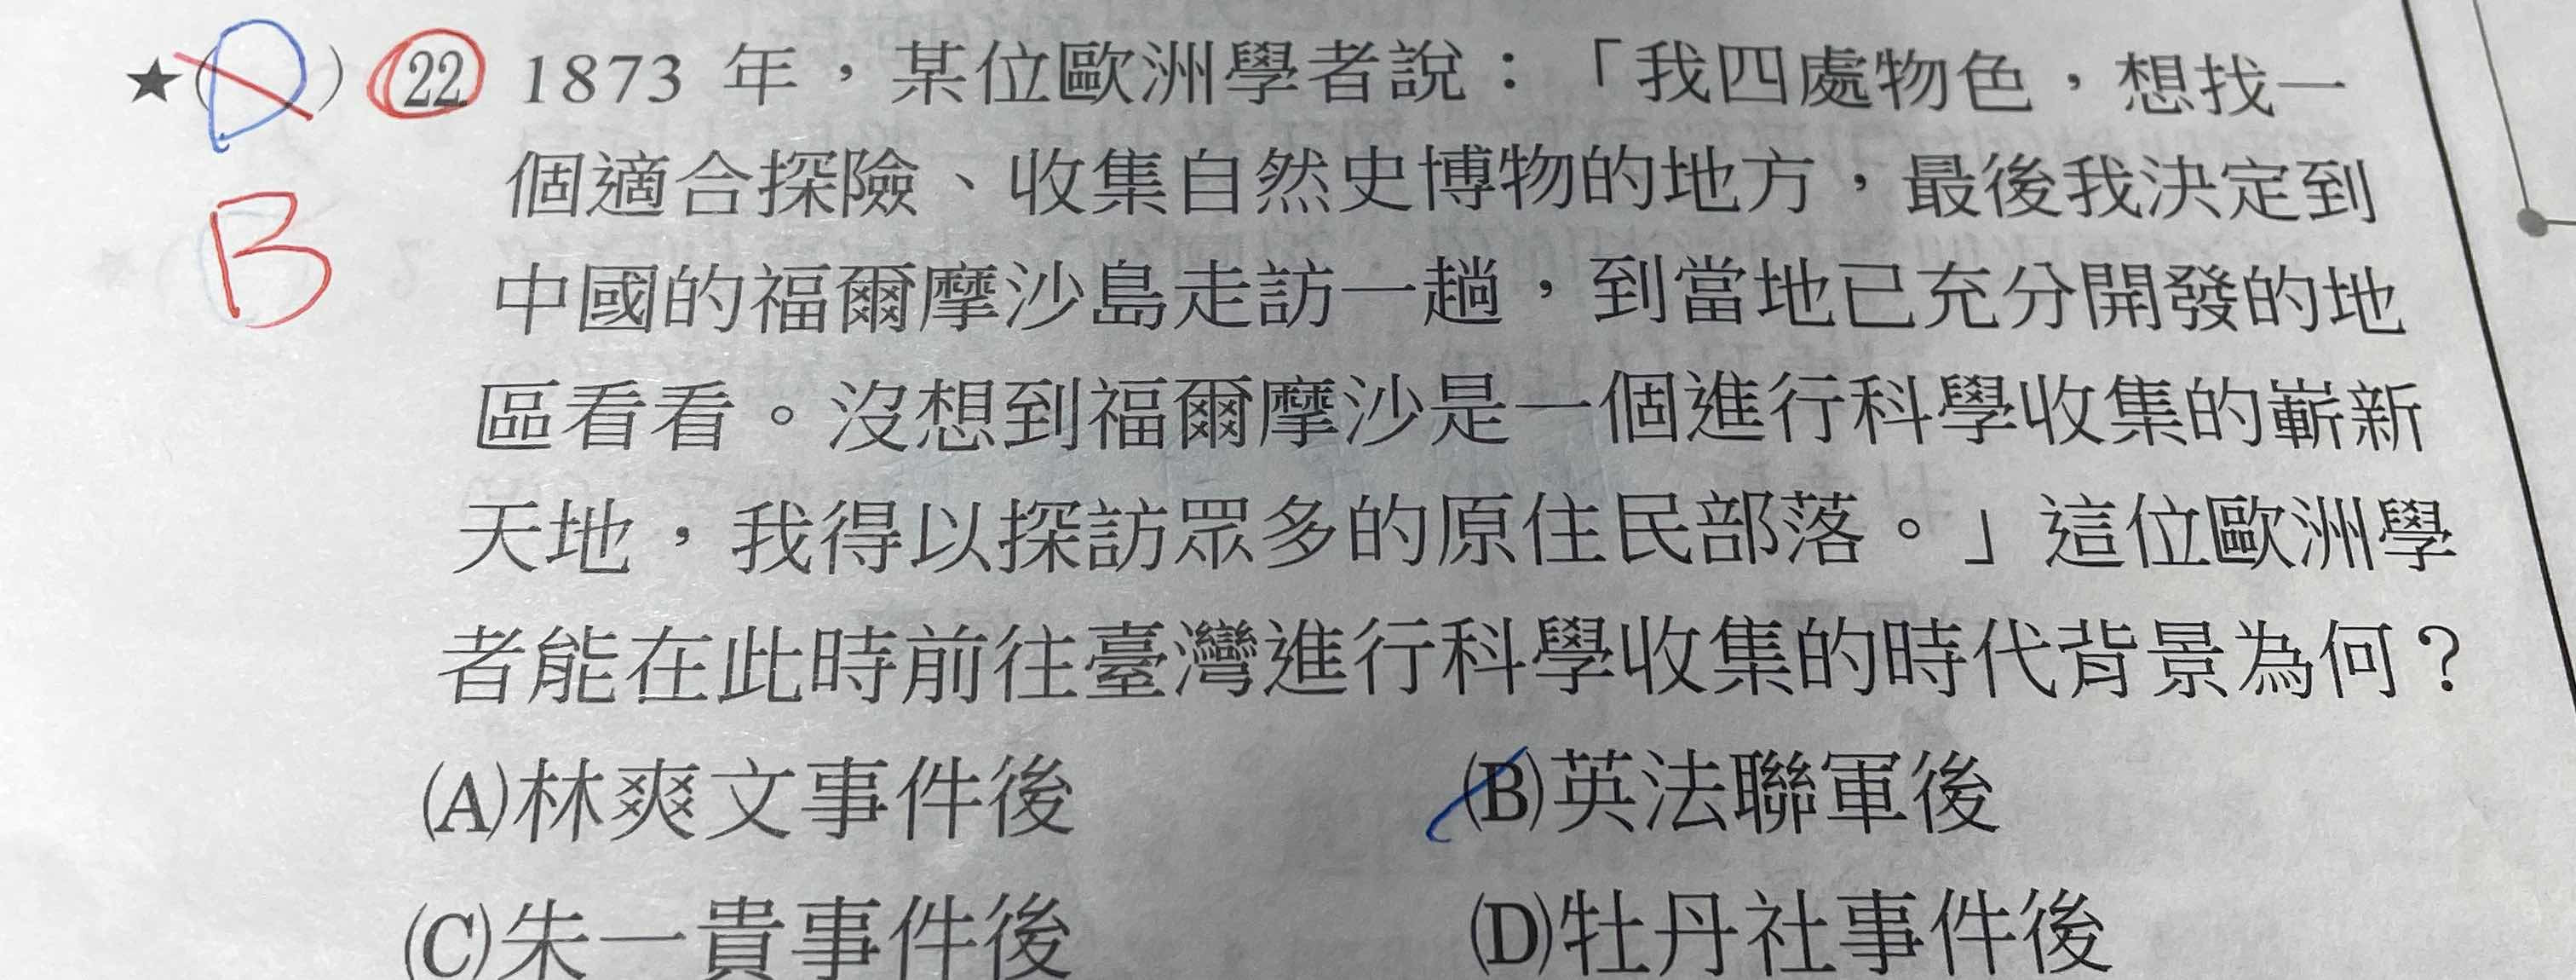 ★( D ) 22 1873 年，某位歐洲學者說：「我四處物色，想找一
B
個適合探險、收集自然史博物的地方，最後我決定到
中國的福爾摩沙島走訪一趟，到當地已充分開發的地
區看看。沒想到福爾摩沙是一個進行科學收集的嶄新
天地，我得以探訪眾多的原住民部落。」這位歐洲學
者能在此時前往臺灣進行科學收集的時代背景為何？
(A)林爽文事件後 (B)英法聯軍後
(C)朱一貴事件後 (D)牡丹社事件後